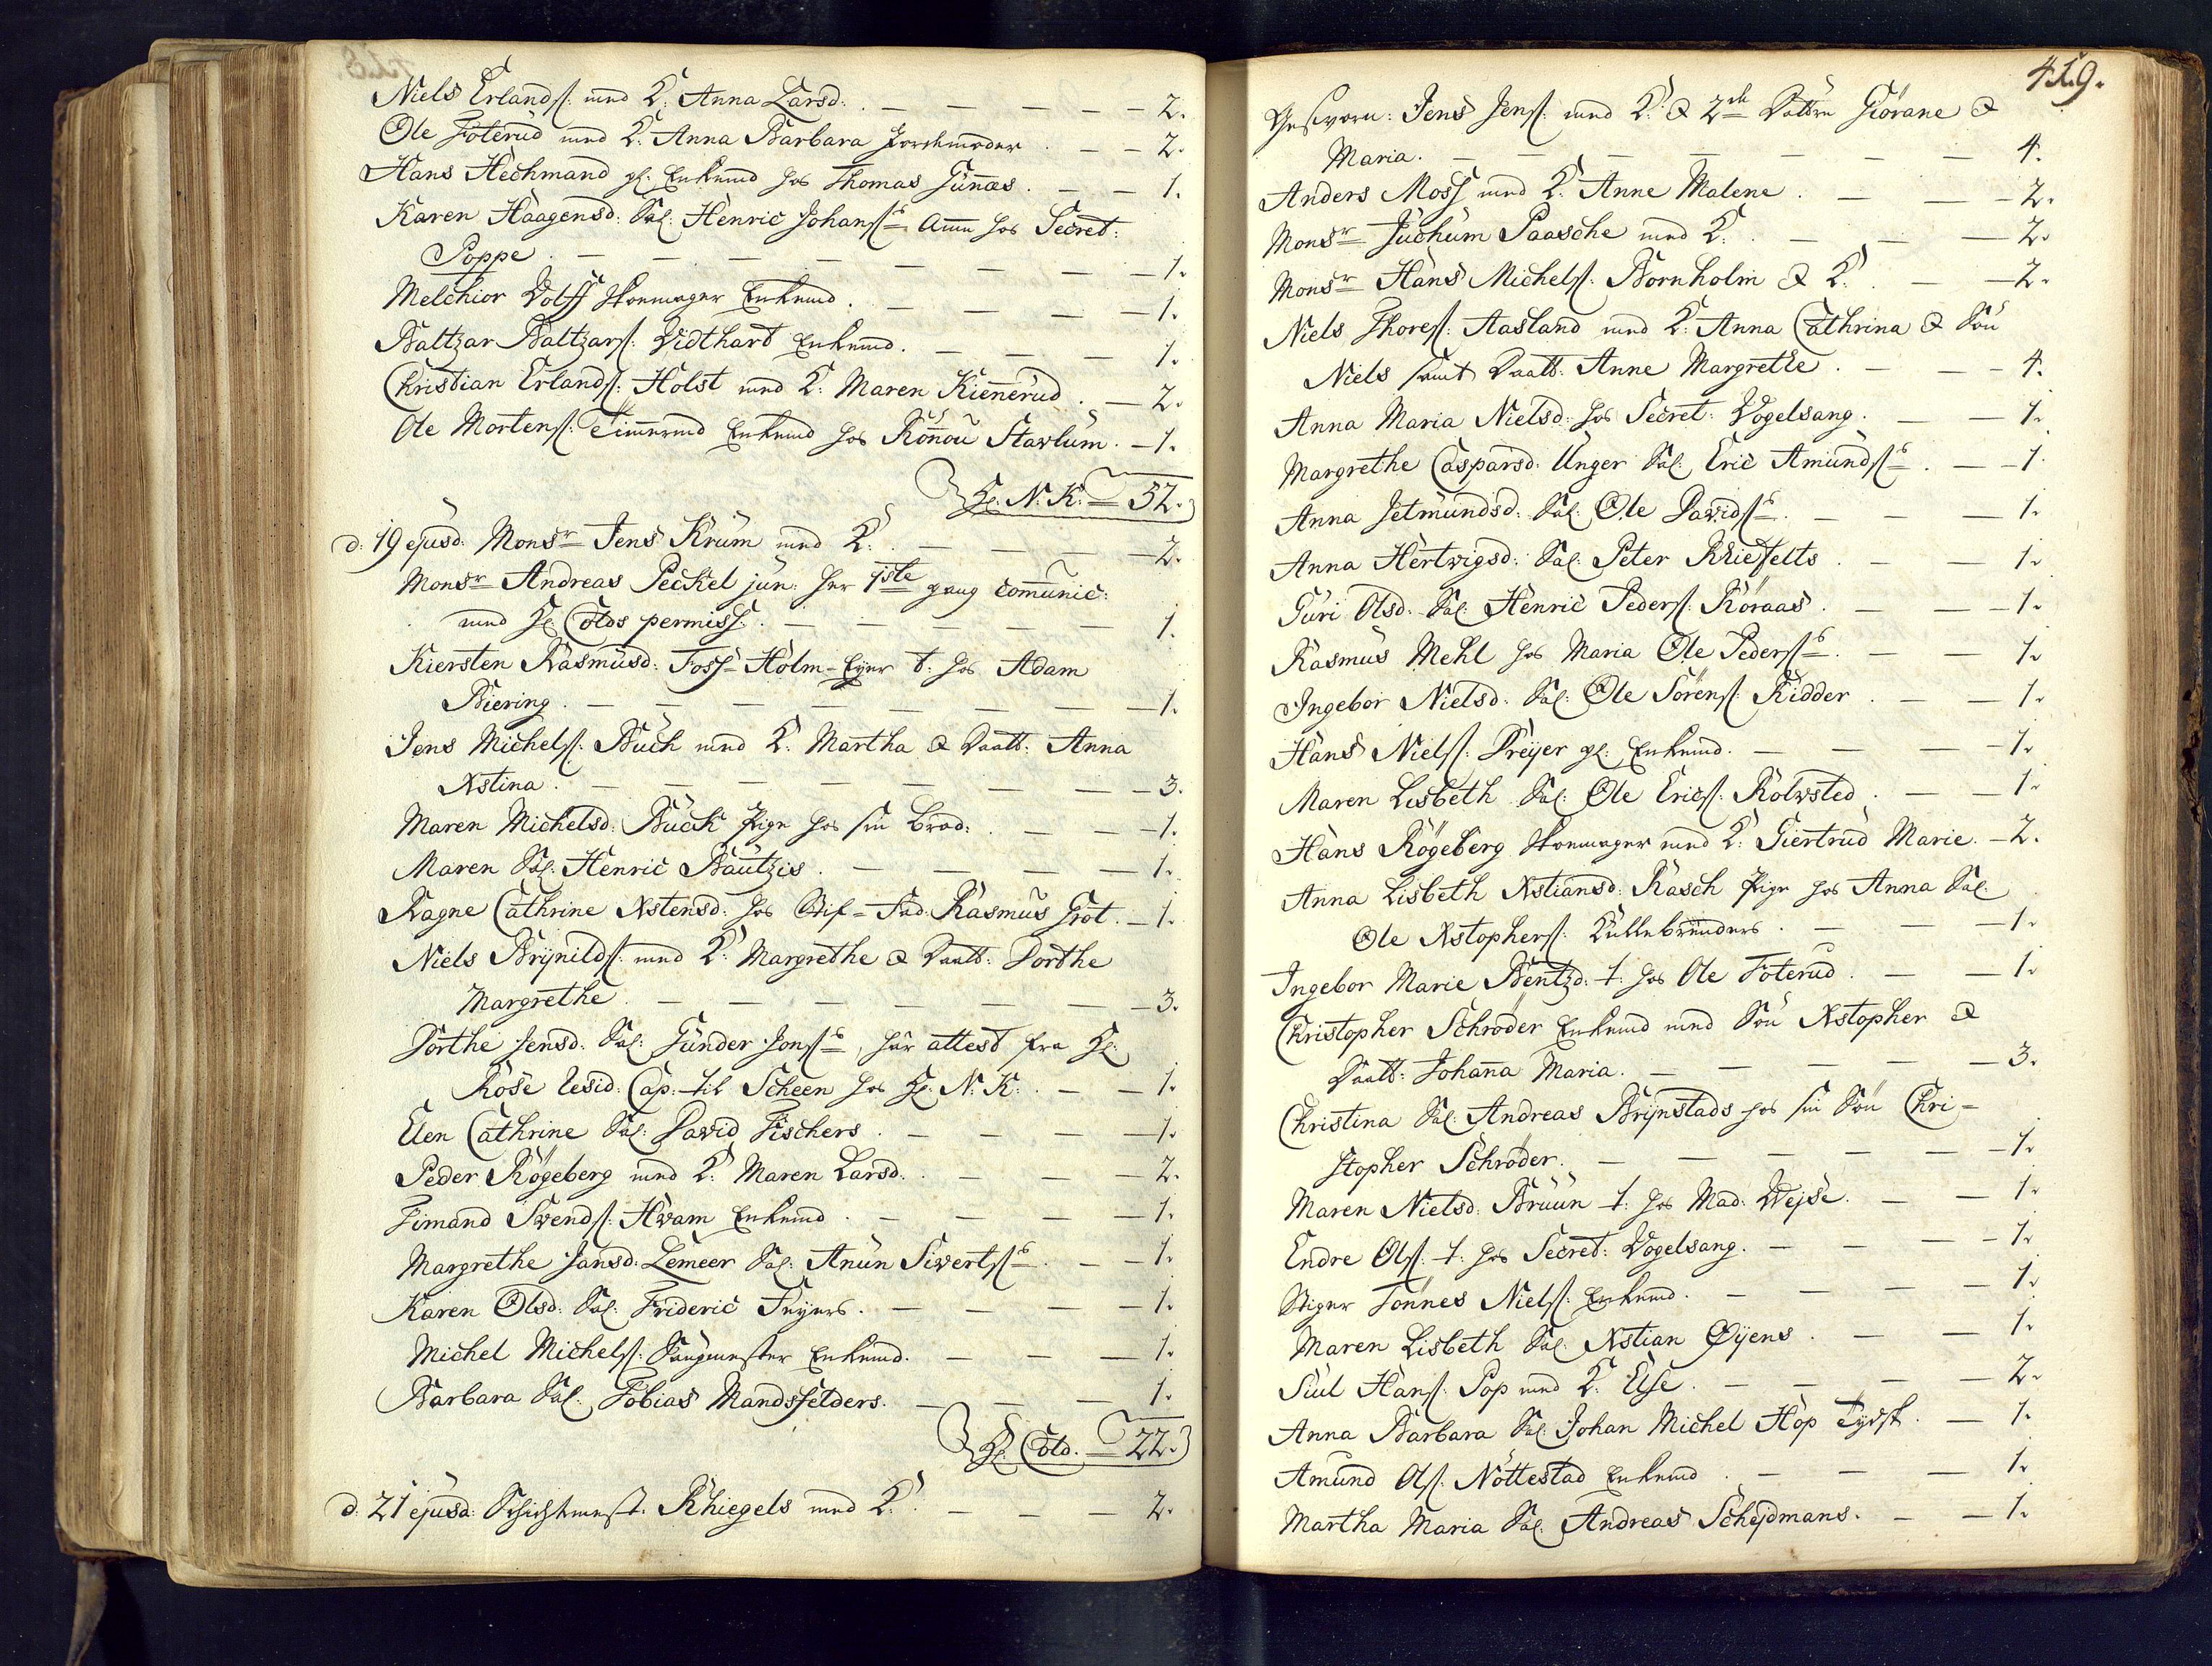 Niels Erlandſ: med K: Anna Larsd: . — — — — — 2.
Ole Foterud med K: Anna Barbara Jordemoder . — — 2.
Hans Hechmand gl: Enkemd hos Thomas Gunæs . — — 1.
Karen Haagensd: Sal: Henric Johanſs Amme hos Secret:
Poppe . — — — — — — — — 1.
Melchior Wolff Skomager Enkemd . — — — — 1.
Baltzar Baltzarſ: Vidthart Enkemd . — — — 1.
Christian Erlandſ: Holst med K: Maren Kiennerud . — 2.
Ole Mortenſ: Timmermd Enkemd hos Rönnou Stavlum . — 1.
Hr: N. K: = 32.
d: 19 ejusd: Monsr Jens Krum med K: . — — — — 2.
Monsr Andreas Peckel jun: har 1ste gang comunic:
med Hr Colds permiss: . — — — — — 1.
Kiersten Rasmusd: Foss-Holm-Eyer t: hos Adam
Biering . — — — — — — — 1.
Jens Michelſ: Buch med K: Martha & Daatt: Anna
Xstina . — — — — — — — 3.
Maren Michelsd: Buck Pige hos sin Brod: . — — — 1.
Maren Sal: Henric Bautzis . — — — — 1.
Ragne Cathrine Xstensd: hos Stif-Fad: Rasmus Grot . — 1.
Niels Brynildſ: med K: Margrethe & Daatt: Dorthe
Margrethe . — — — — — — — 3.
Dorthe Jensd: Sal: Gunder Jonſs, har attest fra Hr:
Rose resid: Cap: til Scheen hos Hr: N. K: . — — 1.
Elen Cathrine Sal: David Fischers . — — — — 1.
Peder Rögeberg med K: Maren Larsd: . — — — 2.
Simand Svendſ: Hvam Enkemd . — — — — 1.
Margrethe Jansd: Lemeer Sal: Anun Sivertſs . — — 1.
Karen Olsd: Sal: Frideric Feyers . — — — — 1.
Michel Michelſ: Saugmester Enkemd . — — — 1.
Barbara Sal: Tobias Mandsfelders . — — — 1.
Hr: Cold. = 22.
d: 21 ejusd: Schichtmest: Khiegels med K: . — — — 2.
419.
Geschworn: Jens Jenſ: med K: & 2de Döttre Giörane &
Maria . — — — — — — — 4.
Anders Moss med K: Anne Malene . — — — 2.
Monsr Juchum Paasche med K: . — — — 2.
Monsr Hans Michelſ: Bornholm & K: . — — 2.
Niels Thoreſ: Aasland med K: Anna Cathrina & Sön
Niels samt Daatt: Anne Margrethe . — — — 4.
Anna Maria Nielsd: hos Secret: Vogelsang . — — 1.
Margrethe Caspersd: Unger Sal: Eric Amundſs . — — 1.
Anna Jetmundsd: Sal: Ole Davidſs . — — — 1.
Anna Hertvigsd: Sal: Peter Khiefelts . — — 1.
Guri Olsd: Sal: Henric Pederſ: Röraas . — — — 1.
Rasmus Mehl hos Maria Ole Pederſs . — — 1.
Ingebor Nielsd: Sal: Ole Sörenſ: Ridder . — — 1.
Hans Nielſ: Dreyer gl: Enkemd . — — — 1.
Maren Lisbeth Sal: Ole Ericſ: Kolvsted . — — 1.
Hans Rögeberg Skomager med K: Giertrud Marie . — 2.
Anna Lisbeth Xstiansd: Rasch Pige hos Anna Sal:
Ole Xstopherſ: Kullebrenders . — — — 1.
Ingebor Marie Bentzd: t: hos Ole Foterud . — — 1.
Christopher Schroder Enkemd med Sön Xstopher &
Daatt: Johanna Maria . — — — — 3.
Christina Sal: Andreas Brynstads hos sin Sön Chri-
stopher Schröder . — — — — — 1.
Maren Nielsd: Bruun t: hos Mad: Weyse . — — 1.
Endre Olſ: t: hos Secret: Vogelsang . — — — 1.
Stiger Tönnes Nielſ: Enkemd . — — — — 1.
Maren Lisbeth Sal: Xstian Öyens . — — 1.
Siul Hanſ: Pop med K: Else . — — — — 2.
Anna Barbara Sal: Johan Michel Hop Tydsk . — 1.
Amund Olſ: Nöttestad Enkemd . — — — 1.
Martha Maria Sal: Andreas Scheydmans . — — 1.